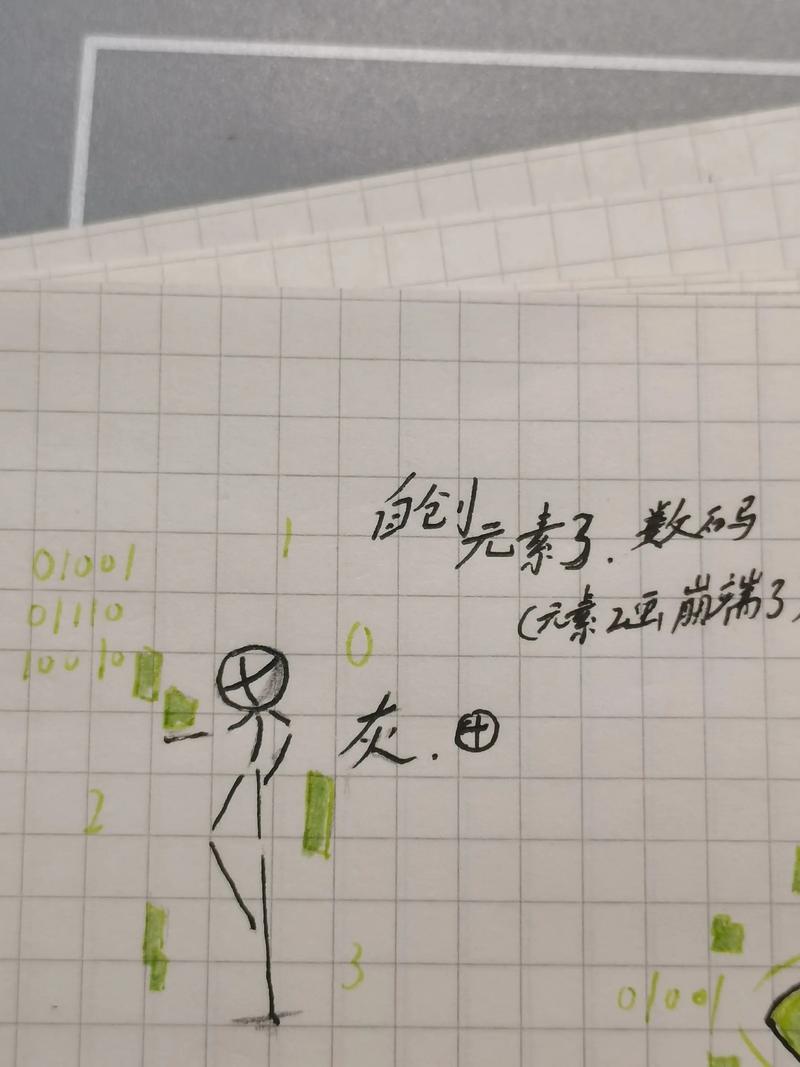 自创
元素了.数码
(元素2画崩端了
1
01001
01110
10010
0
灰.
2
3
01001